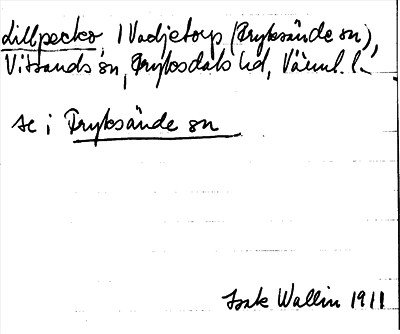 Lillpecko, 1 Vadjetorp (Fryksände sn),
Vitsands sn, Fryksdals hd, Värml. l.
se i Fryksände sn
Isak Wallin 1911